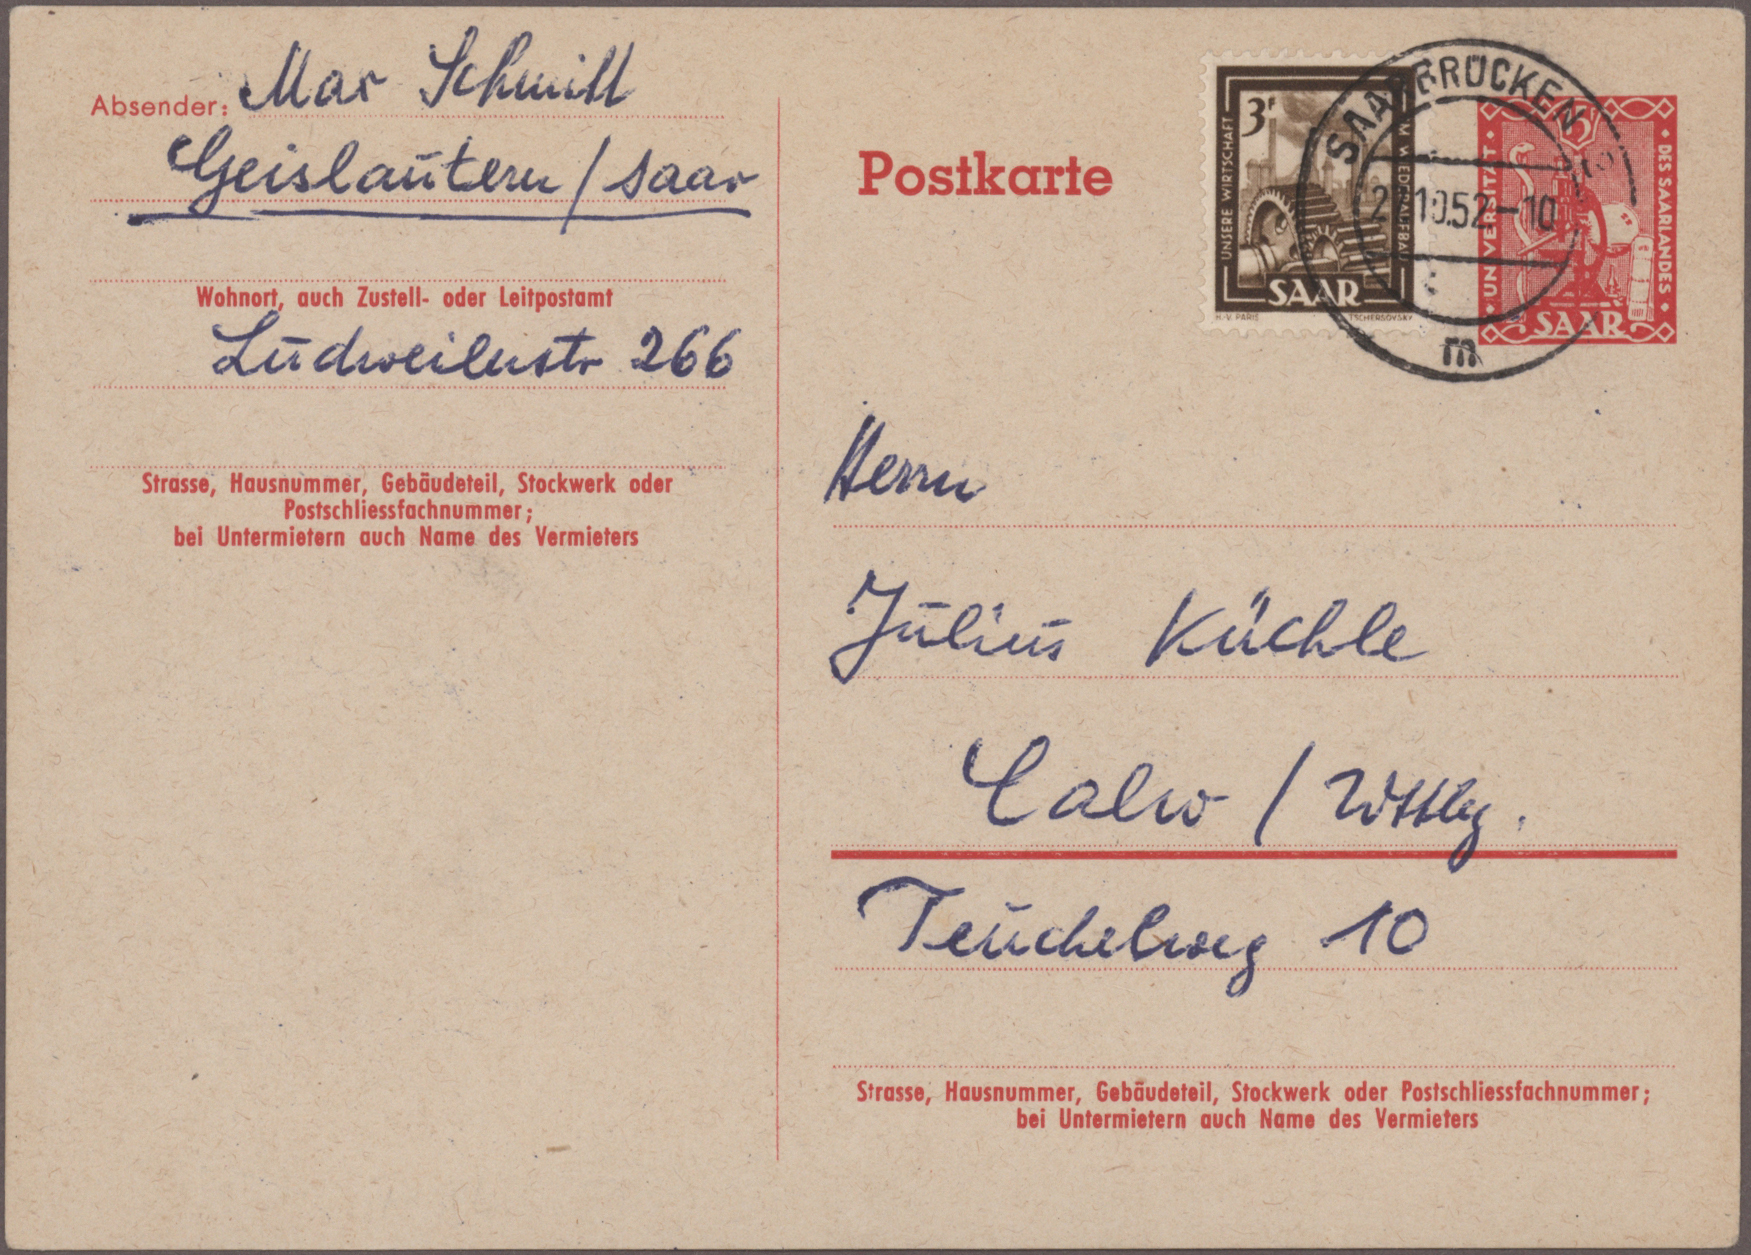 Absender: Max Schmitt
Geislautern / Saar
Wohnort, auch Zustell- oder Leitpostamt
Ludweilerstr 266
Strasse, Hausnummer, Gebäudeteil, Stockwerk oder
Postschliessfachnummer;
bei Untermietern auch Name des Vermieters
Postkarte
3F
UNSERE WIRTSCHAFT
IM WIEDERAUFBAU
SAAR
H.-V. PARIS
TSCHERSOVSKY
SAARBRÜCKEN
10.52-10
m
5F
UNIVERSITÄT
DES SAARLANDES
SAAR
Herrn
Julius Küchle
Calw / Wttbg.
Teuchelweg 10
Strasse, Hausnummer, Gebäudeteil, Stockwerk oder Postschliessfachnummer;
bei Untermietern auch Name des Vermieters